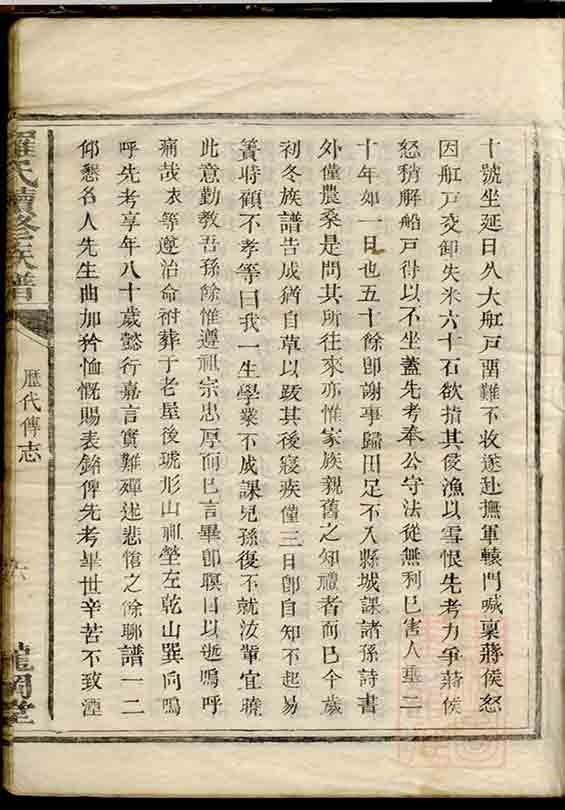 十號坐延日久大舡戸畱難不收遂赴撫軍轅門喊稟蔣侯怒
因舡戸交卸失米六十石欲指其侵漁以雪恨先考力爭蔣侯
怒稍解船戸得以不坐蓋先考奉公守法從無利己害人垂二
十年如一日也五十餘卽謝事歸田足不入縣城課諸孫詩書
外僅農桑是問其所往來亦惟家族親舊之知禮者而已今歲
初冬族譜告成猶自草以跋其後寢疾僅三日卽自知不起易
簀時顧不孝等曰我一生學業不成課兒孫復不就汝輩宜曉
此意勤教吾孫餘惟遵祖宗忠厚而已言畢卽瞑目以逝嗚呼
痛哉 等遵治命祔葬于老屋後琥形山祖塋左乾山巽向嗚
呼先考享年八十歲懿行嘉言實難殫述悲愴之餘聊譜一二
仰懇名人先生曲加矜恤慨賜表銘俾先考畢世辛苦不致湮
羅氏續修族譜
歷代傳志
六